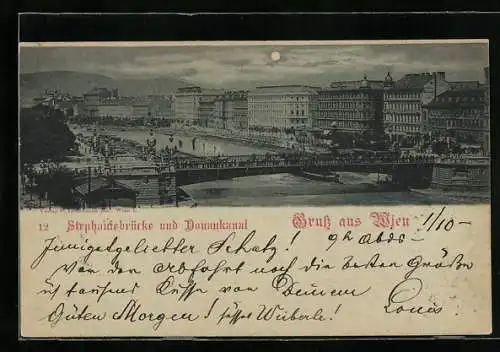 12 Stephaniebrücke und Donaukanal Gruß aus Wien 1/10-
Innigstgeliebter Schatz! 9h Abds
Vor der Abfahrt noch die besten Grüße
u tausend Küsse von Deinem
Guten Morgen! süsses Weiberle! Louis